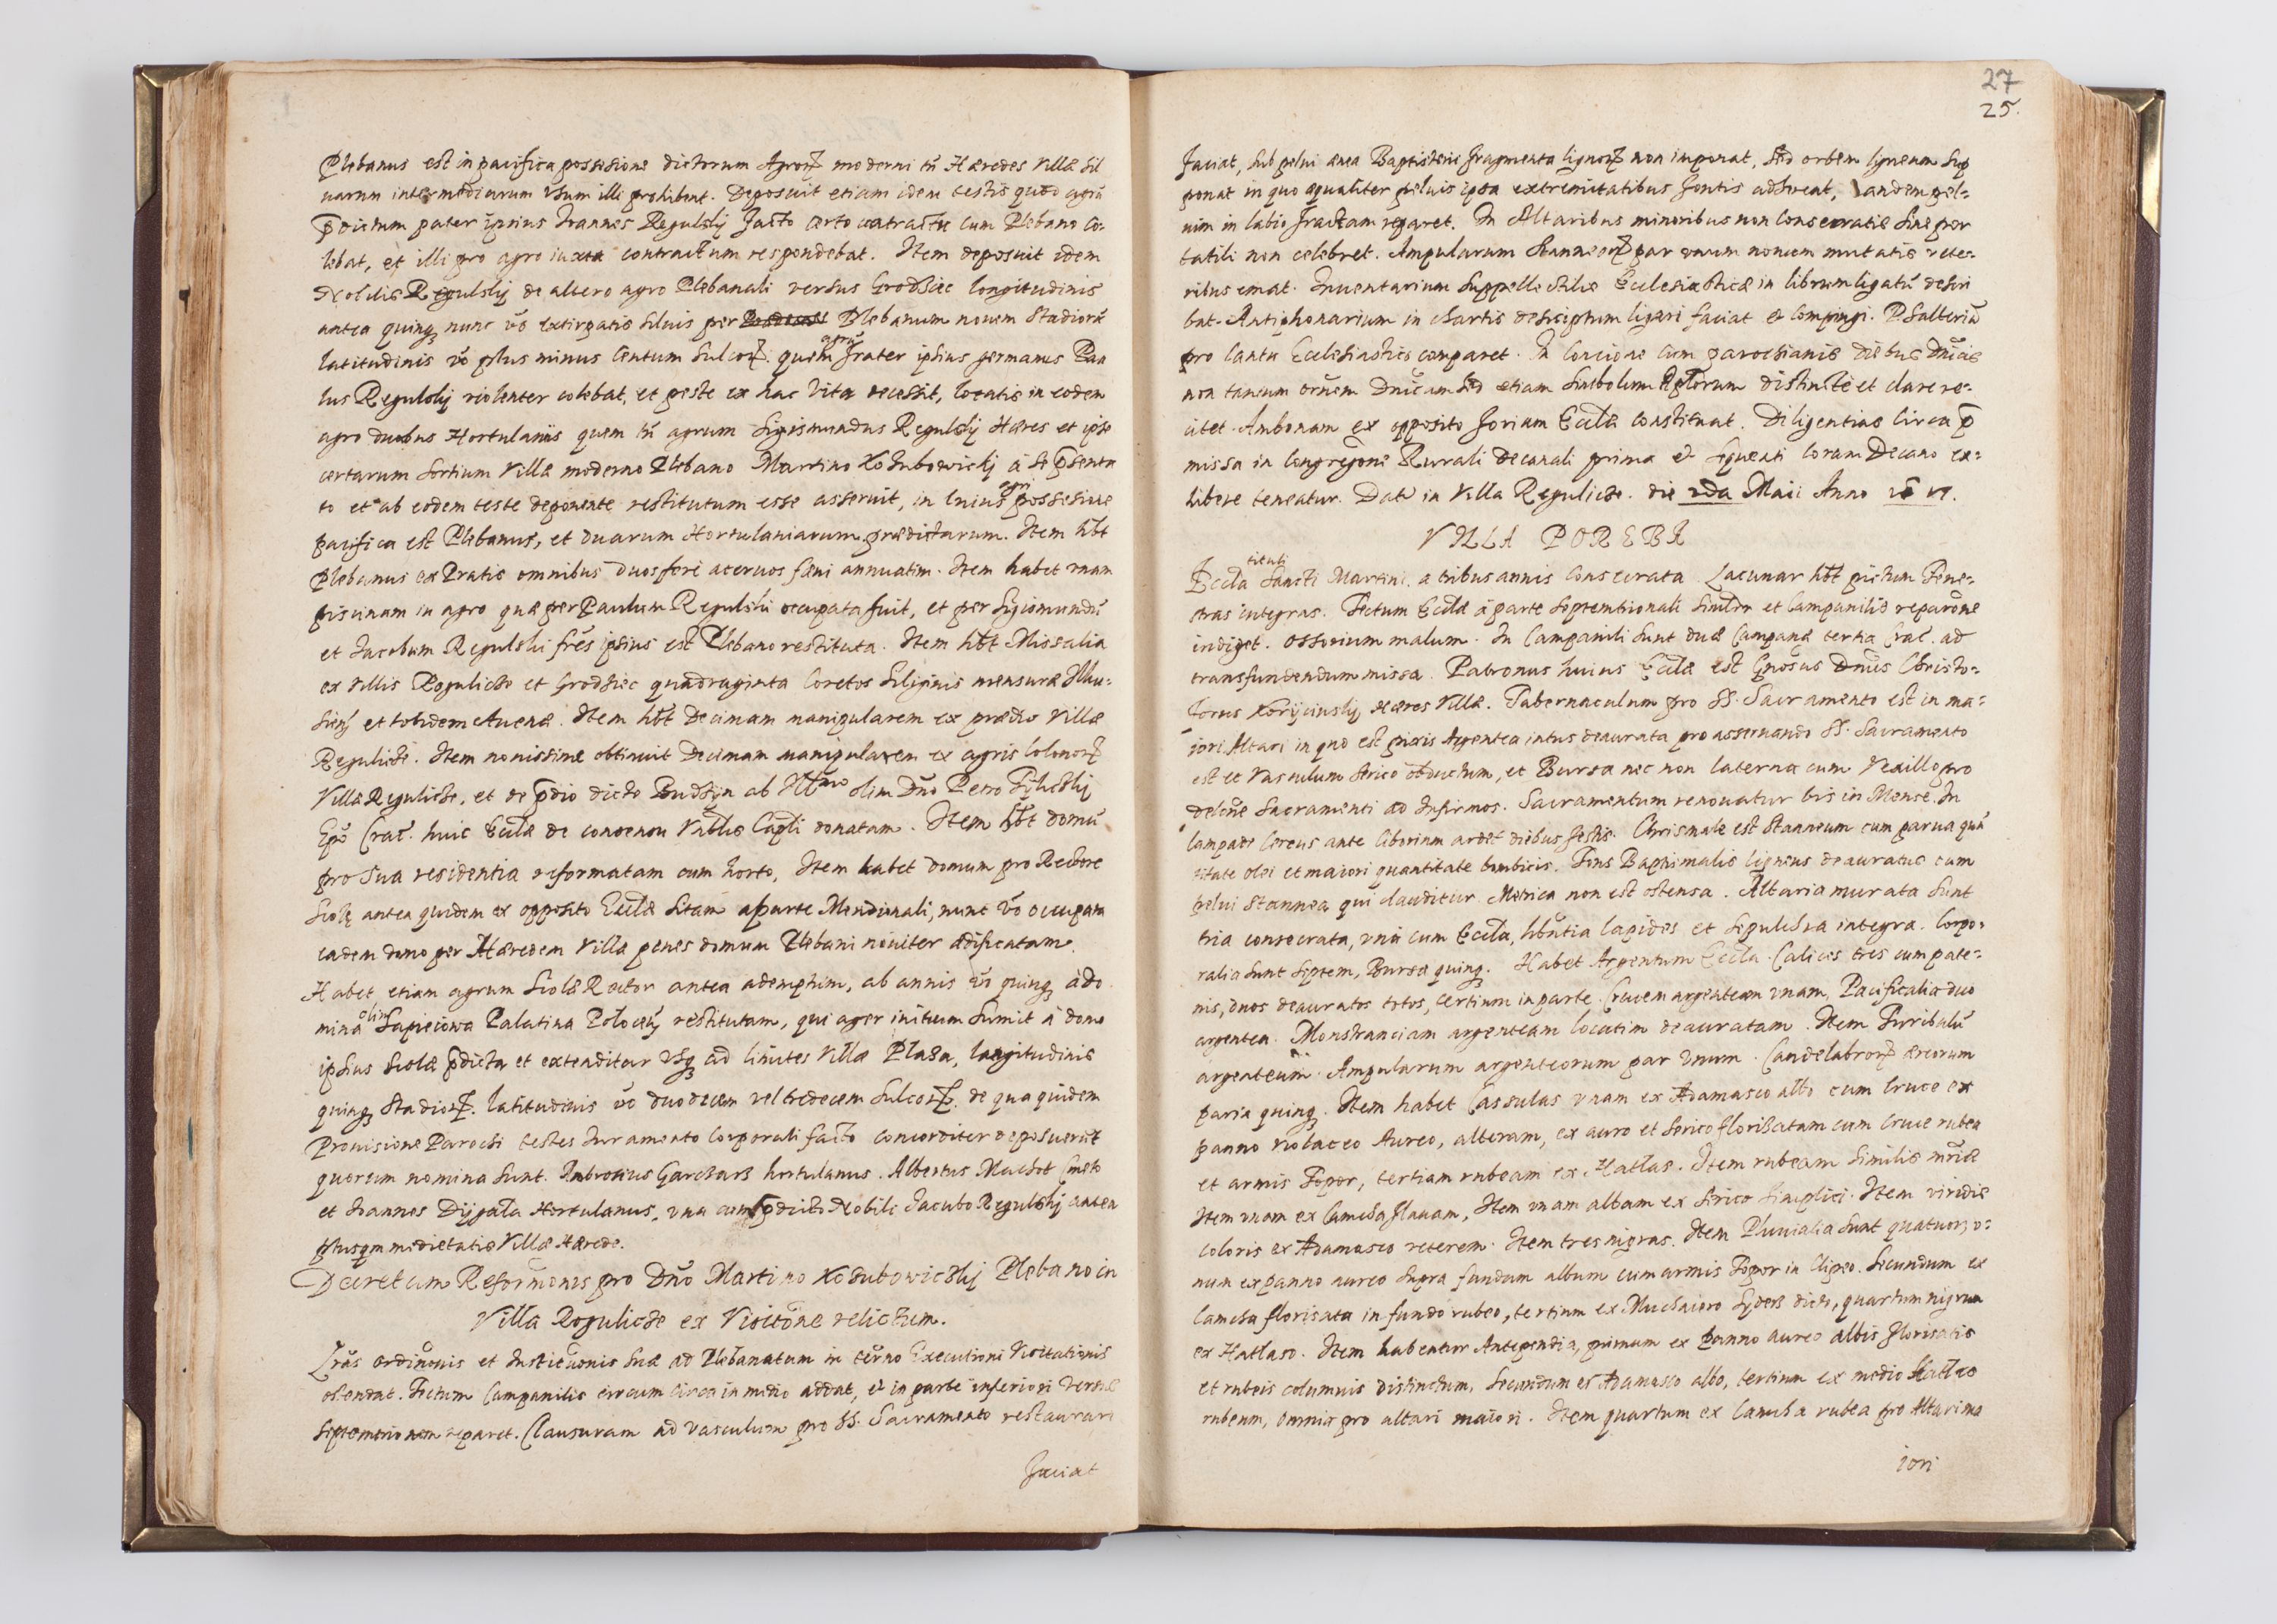 Plebanus est in pacifica possesione dictorum Agrorꝝ moderni tñ Hæredes Villæ sil
uarum intermediarum vsum illi prohibent. Deposuit etiam idem testis quod agrũ
p̄dictum pater ipsius Joannes Regulsky facto certo contractu cum Plebano co-
lebat, et illi pro agro iuxta contractum respondebat. Item deposuit idem
Nobilis Regulskÿ de altero agro Plebanali versus Grodziec longitudinis
antea quinqꝫ nunc vō extirpatis siluis per Plebanum nouem stadiorũ
latitudinis vō plus minus Centum sulcorꝝ. quem agrũ frater ipsius germanus Pau
lus Regulskÿ violenter colebat, et peste ex hac vita decessit, locatis in eodem
agro duobus Hortulaniis quem tñ agrum Sigismundus Regulskÿ Hæres et ipse
certarum sortium Villæ moderno Plebano Martino Kozubowicky à se p̄senta
to et ab eodem teste deponente restitutum esse asseruit, in cuius agri possesione
pacifica est Plebanus, et duarum Hortulaniarum prædictarum. Item hẽt
Plebanus ex Pratis omnibus duos feri aceruos fæni annuatim. Item habet vnam
piscinam in agro quæ per Paulum Regulski occupata fuit, et per Sigismundũ
et Jacobum Regulski frẽs ipsius est Plebano restituta. Item hẽt Missalia
ex Villis Regulicze et Grodziec quadraginta Coretos Siliginis mensuræ Ilku-
sieñ et totidem Auenæ. Item hẽt Decimam manipularem ex prædio Villæ
Regulicze. Item nouissime obtinuit Decimam manipularem ex agris Colonorꝝ
Villæ Regulicze, et de p̄dio dicto Budzÿn ab Illũo olim Dño Petro Tÿlickÿ
Epõ Crac̃. huic Eccłæ de consensu Vnblis Capłi donatam. Item hẽt domũ
pro sua residentia reformatam cum horto, Item habet domum pro Rectore
Scolę antea quidem ex opposito Eccłæ sitam a parte Meridionali, nunc vō occupata
eadem domo per Hæredem Villæ penes domum Plebani nouiter ædificatam.
Habet etiam agrum Scolæ Rector antea ademptum, ab annis vō quinqꝫ à do
mina olim Sapieiowa Palatina Polocen̄ restitutam, qui ager initium sumit à domo
ipsius scolæ p̄dicta et extenditur vsqꝫ ad limites Villæ Plaza, longitudinis
quinqꝫ stadiorꝝ. latitudinis vō duodecem vel tredecem sulcorꝝ. de qua quidem
Prouisione Parochi testes Juramento Corporali facto concorditer deposuerũt
quorum nomina sunt. Ambrosius Garczarz hortulanus. Albertus Machot Cmeto
et Joannes Dÿgała Hortulanus, vna cum p̄dicto Nobili Jacobo Regulskÿ antea
plusqm medietatis Villæ Hærede.
Decretum Reformõnis pro Dño Martino Kozubowickÿ Plebano in
Villa Regulicze ex Visitõne relictum.
Lrãs Ordinõnis et Institũonis suæ ad Plebanatum in term̃o Executioni Visitationis
ostendat. Tectum Campanilis circum circa in medio addat, et in parte inferiori versus
Septemtrionem reparet. Clausuram ad vasculum pro SS. Sacramento restaurari
faciat
27
25.
faciat, sub pelui ænea Baptisterii fragmenta lignorꝝ non imponat, sed orbem ligneum sup
ponat in quo æqualiter peluis ipsa extremitatibus fontis adhæreat, eandem pel-
uim in labio fractam reparet. In Altaribus minoribus non Consecratis sine por
tatili non celebret. Ampularum stanneorꝝ par vnum nouum mutatis vete-
ribus emat. Inuentarium Suppellectilis Ecclesiasticæ in librum ligatũ descri
bat. Antiphonarium in chartis descriptum ligari faciat et compingi. Psalteriũ
pro Cantu Ecclesiastico comparet. In Concione cum parochianis diebus Dnĩcis
non tantum orõnem Dnĩcam sed etiam Simbolum Apłorum distincte et clare re-
citet. Ambonam ex opposito forium Eccłæ constituat. Diligentias Circa p̄
missa in Congregõne Rurali Decanali prima et sequenti Coram Decano ex-
hibere teneatur. Dat̃ in Villa Regulicze. die 2da Maii Anno
VILLA POREBA
Eccła tituli Sancti Martini. a tribus annis Consecrata. Lacunar hẽt pictum Fene-
stras integras. Tectum Eccłæ à parte Septemtrionali similr̃ et Campanilis reparõne
indiget. Ossorium malum. In Campanili sunt duæ Campanæ tertia Crac̃. ad
transfundendum missa. Patronus huius Eccłæ est Gnõsus Dnũs Christo-
forus Korÿcinskÿ Hæres Villæ. Tabernaculum pro SS. Sacramento est in ma-
iori Altari in quo est pixis Argentea intus deaurata pro asseruando SS. Sacramento
est et Vasculum serico obductum, et Bursa nec non laterna cum Vexillo pro
delõne Sacramenti ad Infirmos. Sacramentum renouatur bis in Mense. In
lampade Cereus ante Ciborium ardet diebus festis. Chrismale est Stanneum cum parua quã
titate olei et maiori quantitate bombicis. Fons Baptismalis ligneus deauratus cum
pelui Stannea qui clauditur. Metrica non est ostensa. Altaria murata sunt
tria consecrata, vnã cum Eccła, hñtia lapides et sepulchra integra. Corpo-
ralia sunt septem, Bursæ quinqꝫ. Habet Argentum Eccła. Calices tres cum pate-
nis, duos deauratos totos, tertium in parte. Crucem argenteam vnam, Pacificalia duo
argentea. Monstranciam argenteam locatim deauratam. Item Turribulũ
argenteum. Ampularum argenteorum par vnum. Candelabrorꝝ æreorum
paria quinqꝫ. Item habet Cassulas vnam ex Adamasco albo cum Cruce ex
panno violaceo Aureo, alteram, ex auro et serico florisatam cum Cruce rubea
et armis Topor, tertiam rubeam ex Hatlas. Item rubeam similis mr̃iæ
Item vnam ex Camcha flauam, Item vnam albam ex serico simplici. Item viridis
coloris ex Adamasco veterem. Item tres nigras. Item Pluuialia sunt quatuor, v-
num ex panno aureo supra fundum album cum armis Topor in Clipeo. Secundum ex
Camcha florisata in fundo rubeo, tertium ex Muchaiero dicto, quartum nigrum
ex Hatlaso. Item habentur Antipendia, primum ex Panno aureo albis florisatis
et rubeis columnis distinctum, Secundum ex Adamasco albo, tertium ex medio Hatlaso
rubeum, omnia pro altari maiori. Item quartum ex Camcha rubea pro Altari ma
iori